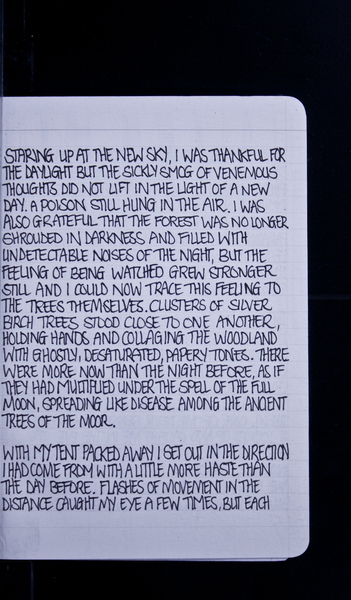 STARING UP AT THE NEW SKY, I WAS THANKFUL FOR
THE DAYLIGHT BUT THE SICKLY SMOG OF VENEMOUS
THOUGHTS DID NOT LIFT IN THE LIGHT OF A NEW
DAY. A POISON STILL HUNG IN THE AIR. I WAS
ALSO GRATEFUL THAT THE FOREST WAS NO LONGER
SHROUDED IN DARKNESS AND FILLED WITH
UNDETECTABLE NOISES OF THE NIGHT, BUT THE
FEELING OF BEING WATCHED GREW STRONGER
STILL AND I COULD NOW TRACE THIS FEELING TO
THE TREES THEMSELVES. CLUSTERS OF SILVER
BIRCH TREES STOOD CLOSE TO ONE ANOTHER,
HOLDING HANDS AND COLLAGING THE WOODLAND
WITH GHOSTLY, DESATURATED, PAPERY TONES. THERE
WERE MORE NOW THAN THE NIGHT BEFORE, AS IF
THEY HAD MULTIPLIED UNDER THE SPELL OF THE FULL
MOON, SPREADING LIKE DISEASE AMONG THE ANCIENT
TREES OF THE MOOR.
WITH MY TENT PACKED AWAY I SET OUT IN THE DIRECTION
I HAD COME FROM WITH A LITTLE MORE HASTE THAN
THE DAY BEFORE. FLASHES OF MOVEMENT IN THE
DISTANCE CAUGHT MY EYE A FEW TIMES, BUT EACH